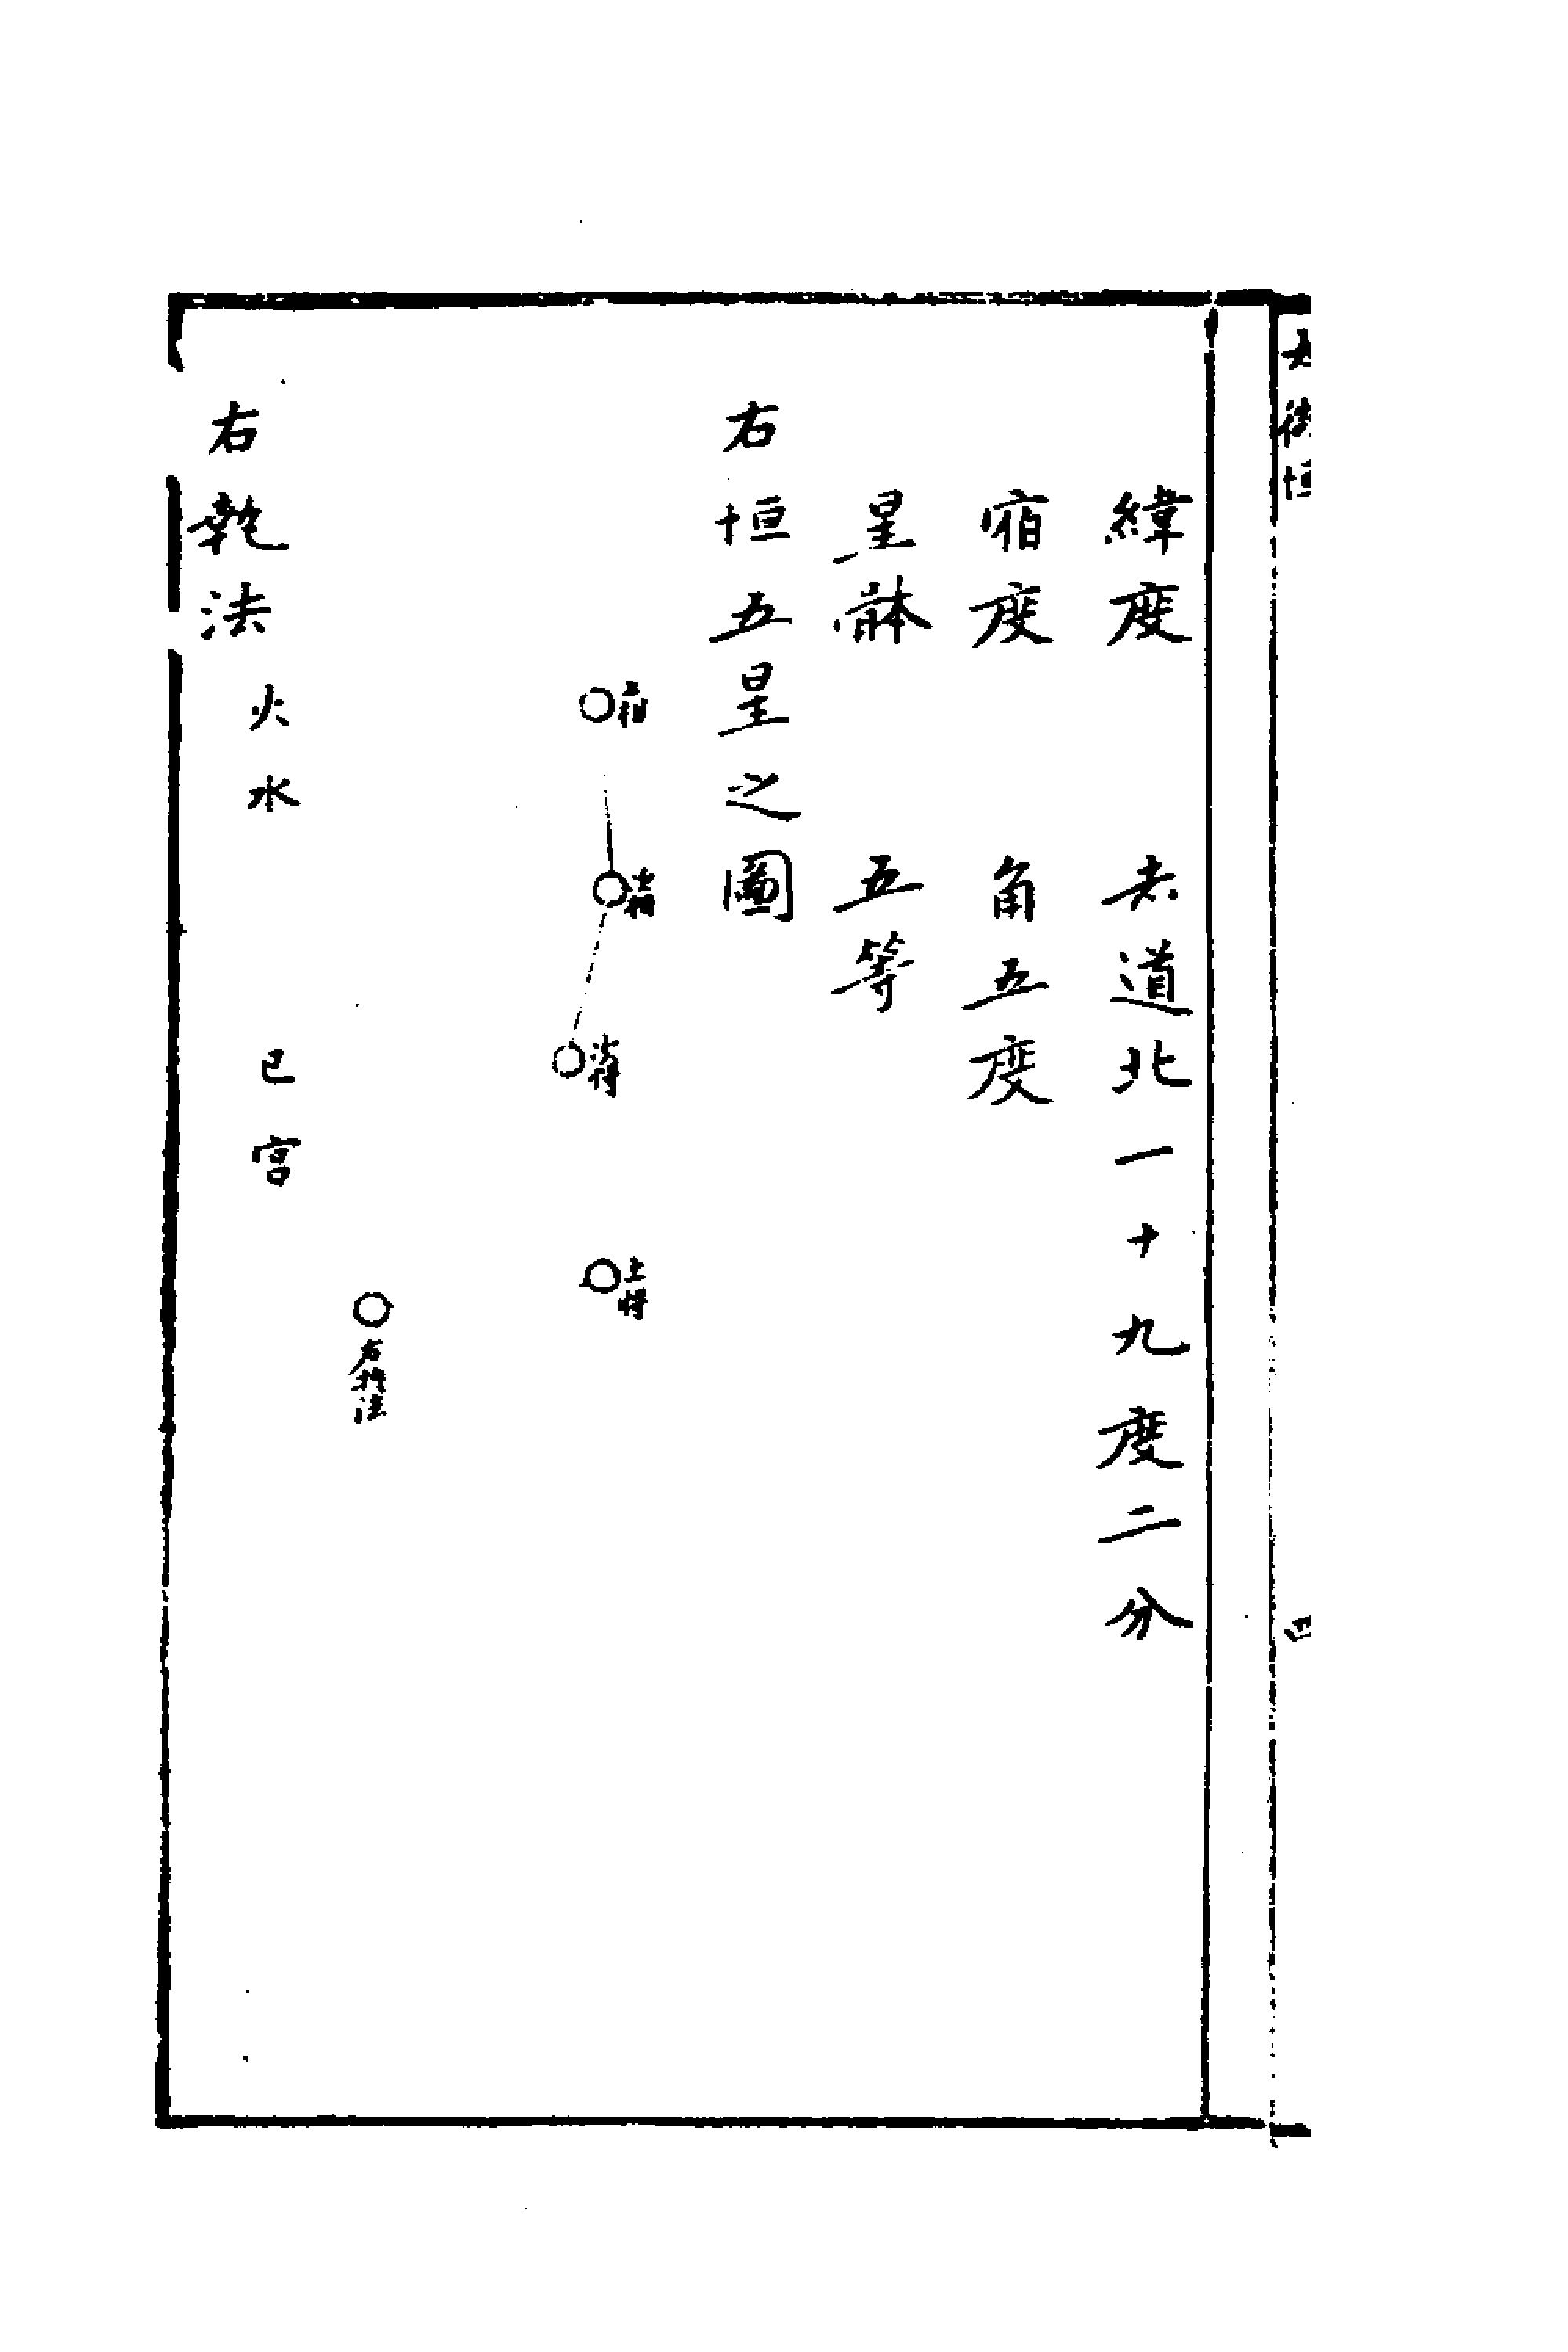 緯度 赤道北一十九度二分
宿度 角五度
星體 五等
右垣五星之圖
上相
次相
次将
上將
右執法
右執法 火水 巳宮
四